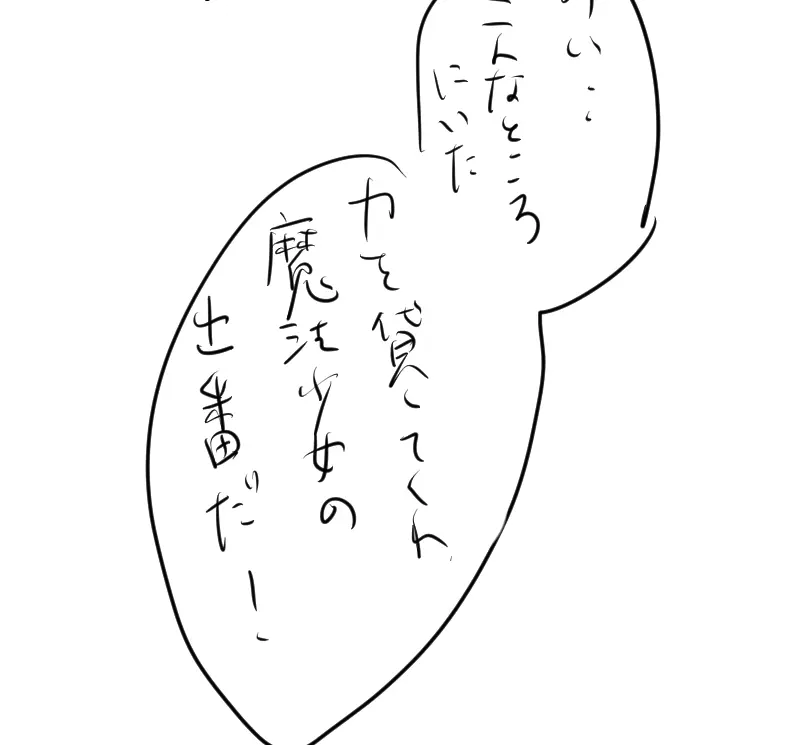 い…
こんなところ
にいた
力を貸してくれ
魔法少女の
出番だ!